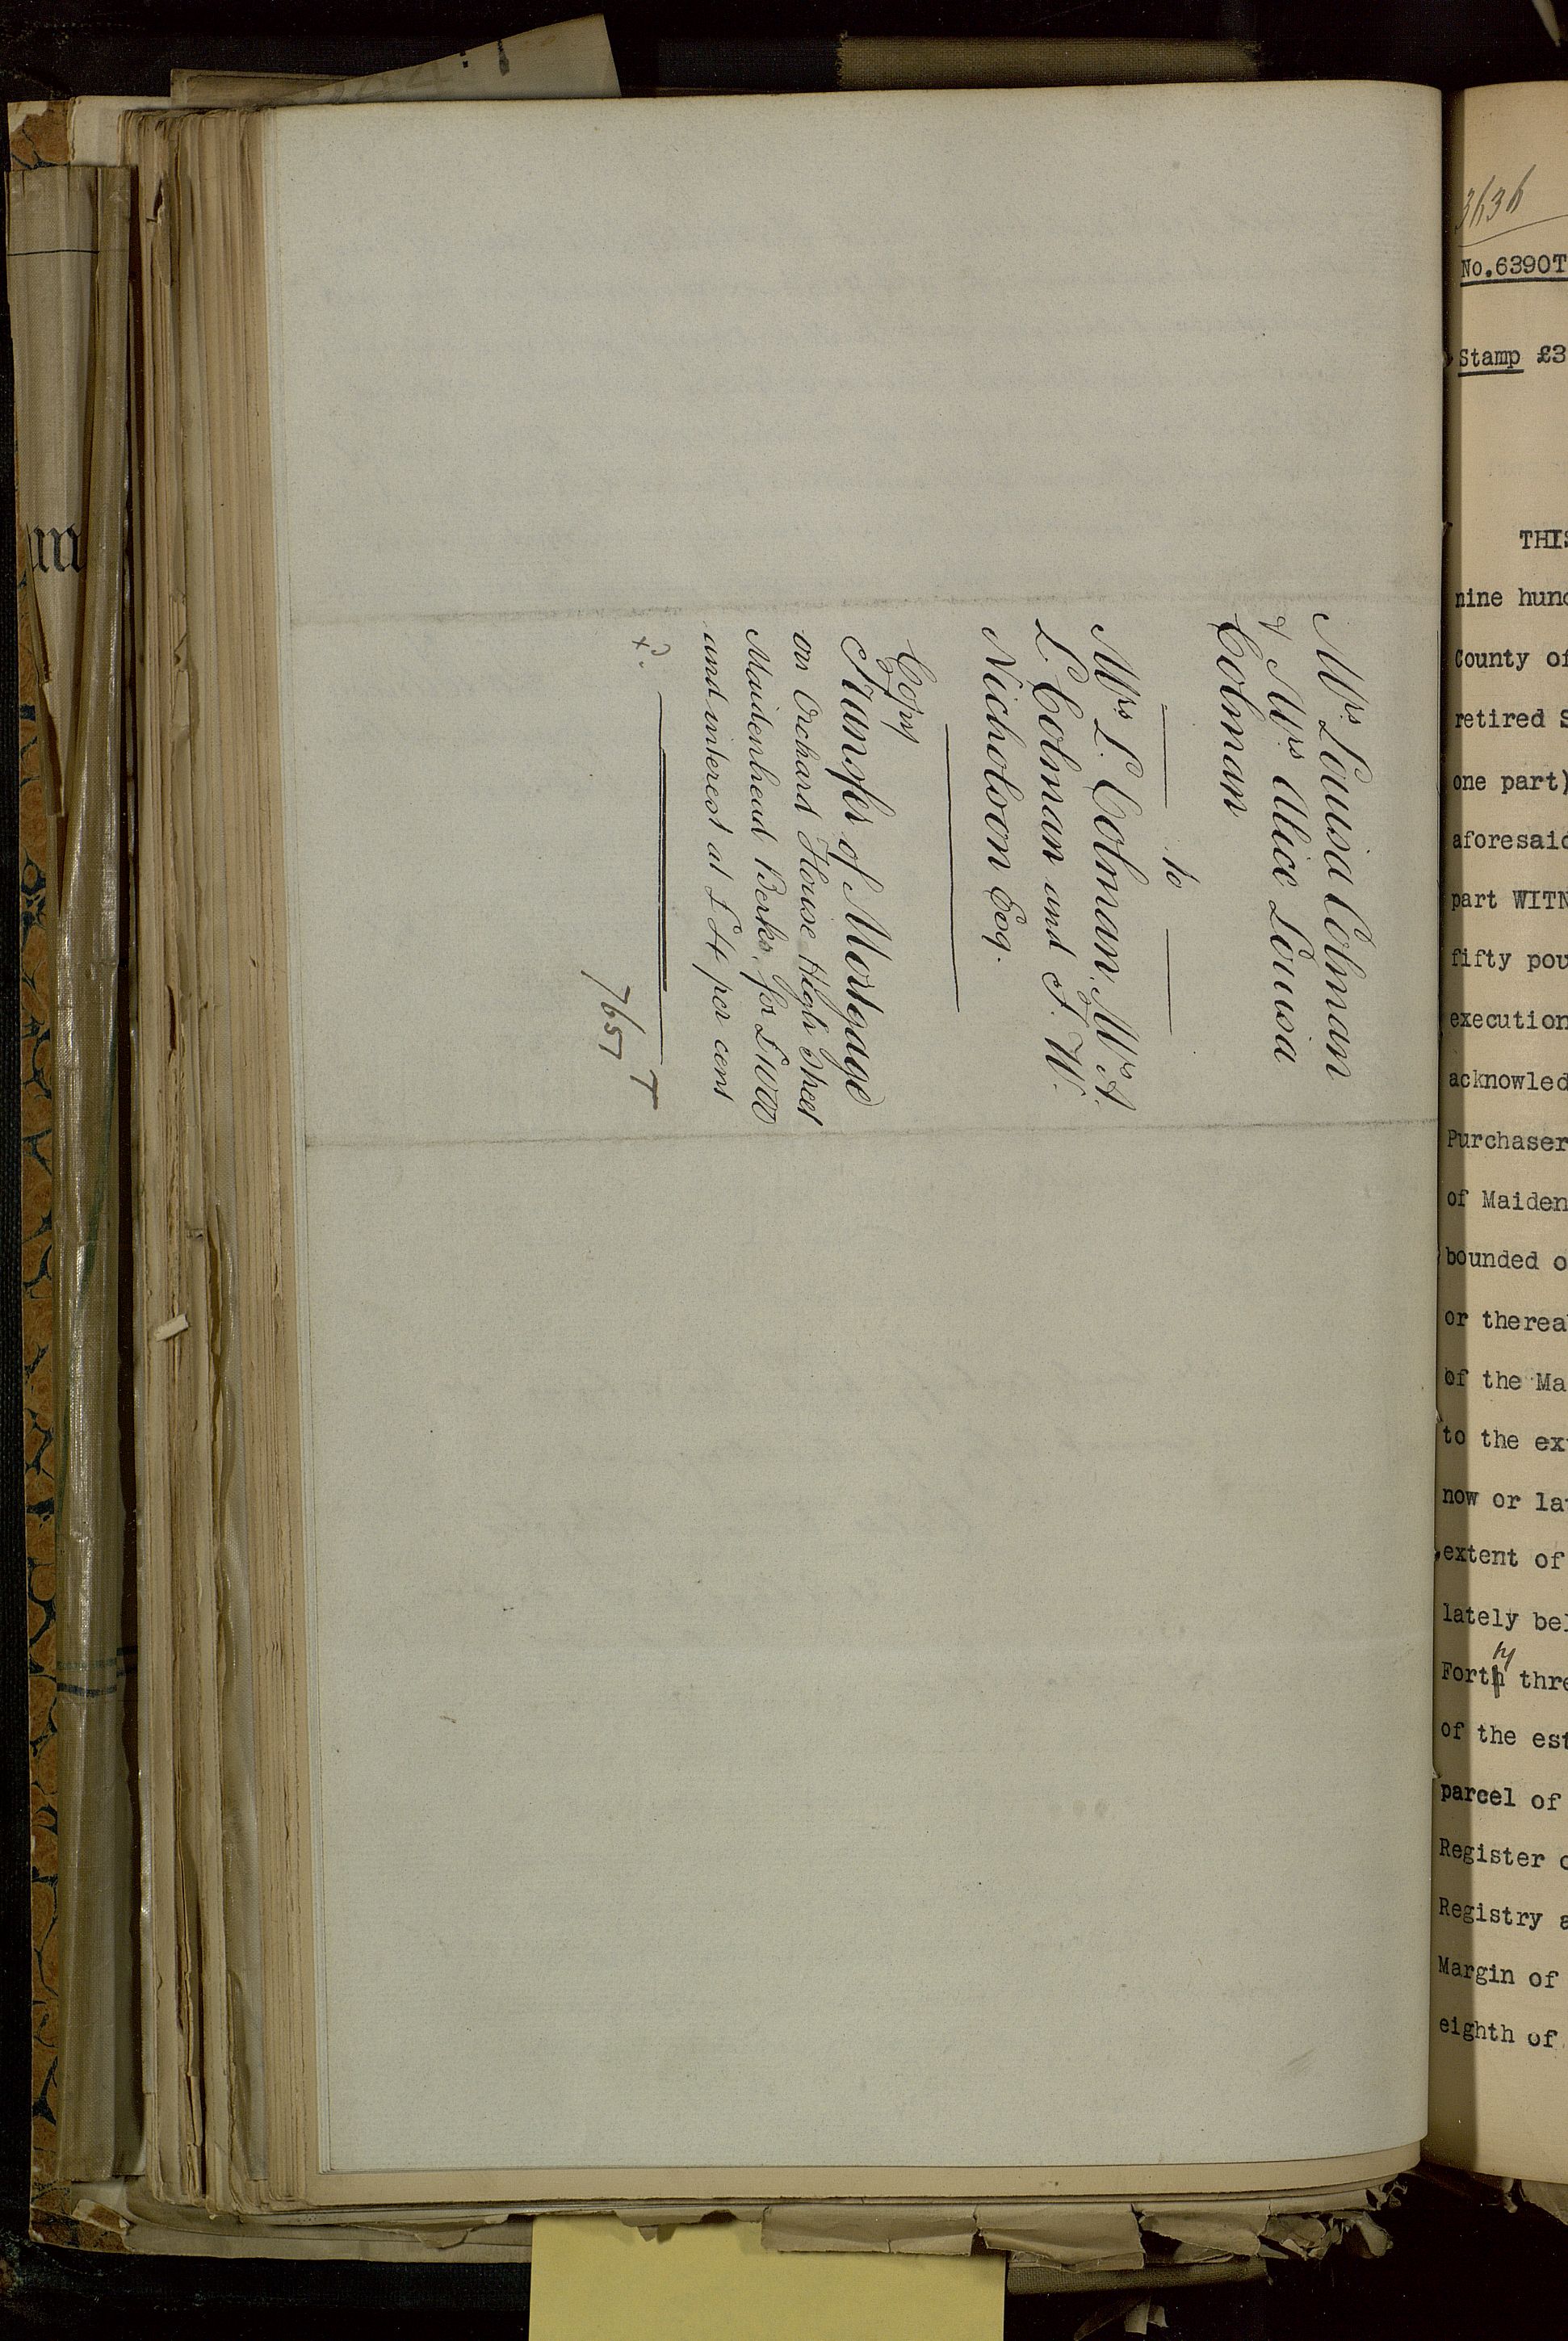 Mrs Louisa Colman
& Mrs Alice Louisa
Colman
to
Mrs L. Colman, Mrs A.
L. Colman and F. W.
Nicholson Esq.
Copy
Transfer of Mortgage
on Orchard House High Street
Maidenhead Berks, for £1100
and interest at £4 per cent
7657 T
3636
No.6390T
Stamp £3
THIS
nine hund
County of
retired S
one part)
aforesaid
part WITN
fifty pou
execution
acknowled
Purchaser
of Maiden
bounded o
or therea
of the Ma
to the ext
now or lat
extent of
lately bel
Forth thre
of the est
parcel of
Register o
Registry a
Margin of
eighth of